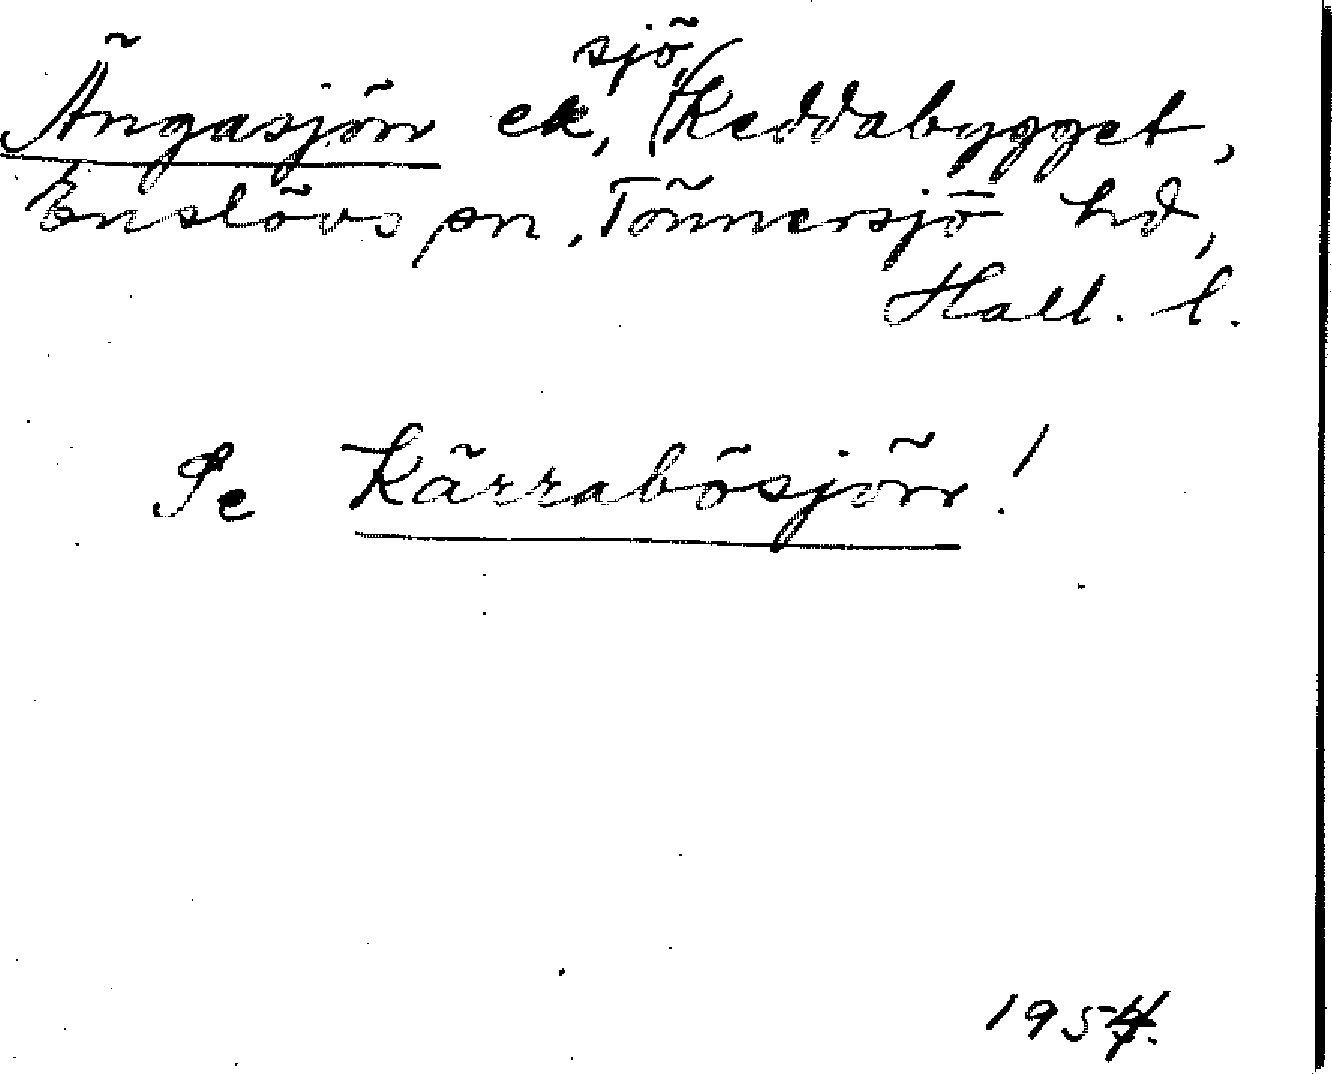 sjö
Ängasjön ek, Keddabygget,
Enslövs sn, Tönnersjö hd,
Hall. l.
Se Kärrabösjön!
1954.